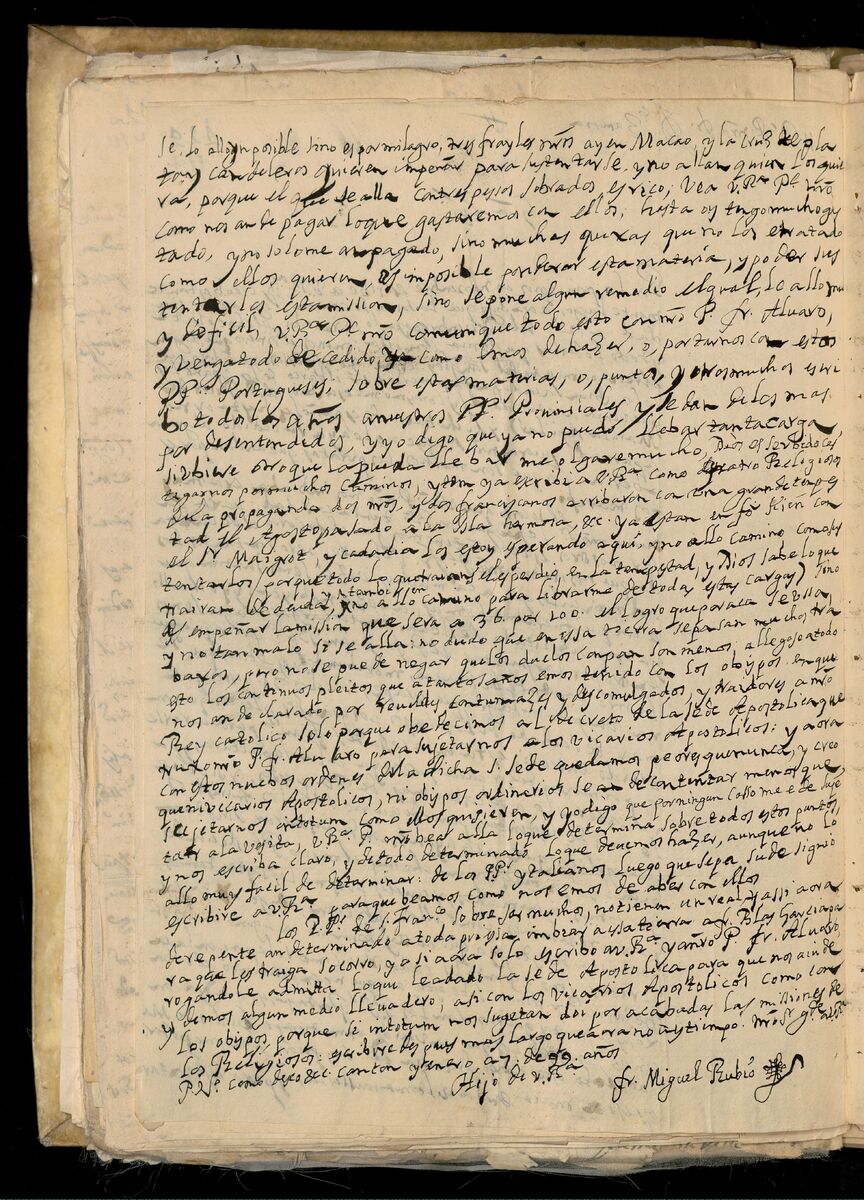 se, lo allo ynposible sino es por milagro, tres frayles nr̃os ay en Macao, y la cruz de pla
ta, y candeleros quieren impeñar para sustentarse, y no allan quien los quie
ra, porque el que se alla con tres pesos sobrados, es rico, vea V. Rª Pe nr̃o
como nos an de pagar lo que gastaremos con ellos, hasta oy tengo mucho gas
tado, y no solo me an pagado, sino muchas quexas que no los e tratado
como ellos quieren, es imposible ponderar esta materia, y poder sus
tentarlos esta mission, sino se pone algun remedio el qual, lo allo mu
y deficil, V. Rª Pe nr̃o comunique todo esto con nr̃o P. fr. Alvaro,
y venga todo decedido, como emos de hazer, o, portarnos con estos
PPs Portugueses; sobre estas materias, o, puntos, y otros muchos escri
bo todos los años a nuestros PPs Provinciales y se dan de los mas
por desentendidos, y yo digo que ya no puedo llebar tanta carga,
si ubiere otro que la pueda llebar me olgare mucho, Dios es servido cas
tigarnos por muchos caminos, yten ya escribi a V. Rª como quatro Religiosos
de la propaganda dos nr̃os, y dos franciscanos arribaron con una grande tempes
tad el Agosto pasado a la Isla hermosa, &c. ya estan en fo Kien con
el Sr Maigrot, y cada dia los estoy esperando aqui, y no allo camino como sus
tentarlos (porque todo lo que traian se les perdio en la tempestad, y Dios sabe lo que
trairan de deuda, y tambien no allo camino para librarme de todas estas cargas) sino
es empeñar la mission que sera a 36 por 100. el logro que por aca se ussa
y no tan malo si se alla: no dudo que en essa tierra se pasan muchos tra
baxos, pero no se puede negar que los duelos con pan son menos, allegase a todo
esto los continuos pleitos que a tantos años emos tenido con los obispos en que
nos an declarado por reveldes contumazes y descomulgados, y traidores a nr̃o
Rey catolico solo porque obedecimos al decreto de la sede Apostolica que
truxo nr̃o P. fr. Alvaro para sujetarnos a los vicarios Apostolicos: y aora
con estos nuebos ordenes de la dicha S. sede quedamos peores que nunca, y creo
que ni vicarios Apostolicos, ni obispos ordinerios se an de contentar menos que
sujetarnos intotum como ellos quisieren, y yo digo que por ningun casso me e de suje
tar a la vesita, V. Rª P. nr̃o bea alla lo que determina sobre todos estos puntos,
y nos escriba claro, y de todo determinado lo que devemos hazer, aunque no lo
allo muy facil de determinar: de los PPs ytalianos luego que sepa su designio
escribire a V. Rª para que beamos como nos emos de aber con ellos
los PPs de S. Franco sobre ser muchos, no tienen un real, y assi aora
de repente an determinado a toda prissa imbiar a essa tierra a fr. Blas Garcia pa
ra que les traiga socorro, y assi aora solo escribo a V. Rª y a nr̃o P. fr. Alvaro,
rogandole admitta lo que le a dado la sede Apostolica para que nos aiude
y demos algun medio llevadero, asi con los vicarios Apostolicos como con
los obispos porque si intotum nos sugetan doi por acabadas las missiones de
los Religiosos: escribire despues mas largo que aora no ay tiempo. nr̃o Sr gde a V. Rª
P. Nº como deseo &c. Canton y enero a 7. de 99. años
Hijo de V. Rª
fr. Miguel Rubio